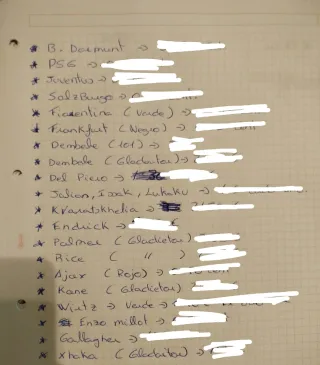 * B. Dormunt →
* PSG →
* Juventus →
* SalzBurgo →
* Fiorentina (Verde) →
* Frankfurt (Negro) →
* Dembele (101) →
* Dembele (Gladiator) →
* Del Piero →
* Julian, Isak, Lukaku →
* Kvaratskhelia →
* Endrick →
* Palmer (Gladietor)
* Rice ( " )
* Ajax (Rojo) →
* Kane (Gladietor)
* Wirtz → Verde →
* Enzo millot →
* Gallagher →
* Xhaka (Gladietor) →